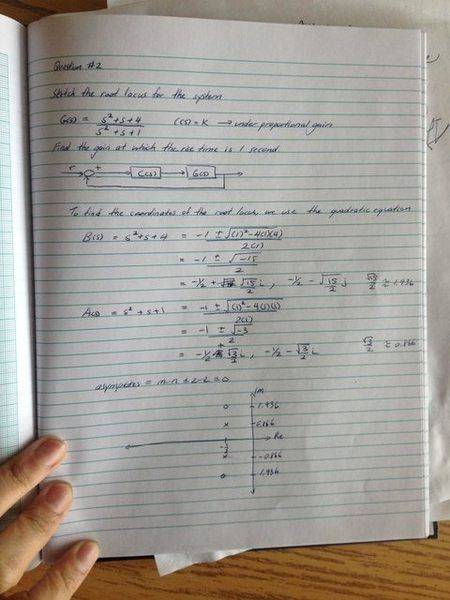 Question #2
Sketch the root locus for the system
G(s) = s² + s + 4 / s² + s + 1    C(s) = K → under proportional gain
Find the gain at which the rise time is 1 second.
r + C(s) G(s)
To find the coordinates of the root locus, we use the quadratic equation
B(s) = s² + s + 4 = -1 ± √(1)² - 4(1)(4) / 2(1)
= -1 ± √-15 / 2
= -½ + √15/2 i, -½ - √15/2 i    √15/2 ≈ 1.936
A(s) = s² + s + 1 = -1 ± √(1)² - 4(1)(1) / 2(1)
= -1 ± √-3 / 2
= -½ + √3/2 i, -½ - √3/2 i    √3/2 ≈ 0.866
asymptotes = m-n = 2-2 = 0
Im
o 1.936
x 0.866
-½ Re
x -0.866
o 1.936